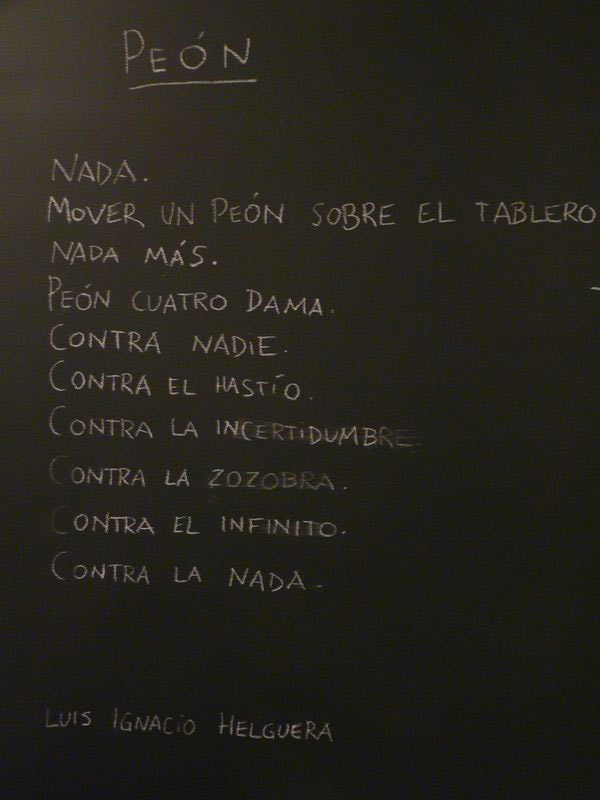 PEÓN
NADA.
MOVER UN PEÓN SOBRE EL TABLERO
NADA MÁS.
PEÓN CUATRO DAMA.
CONTRA NADiE.
CONTRA EL HASTÍO.
CONTRA LA INCERTiDUMBRE.
CONTRA LA ZOZOBRA.
CONTRA EL INFINITO.
CONTRA LA NADA.
LUIS IGNACiO HELGUERA